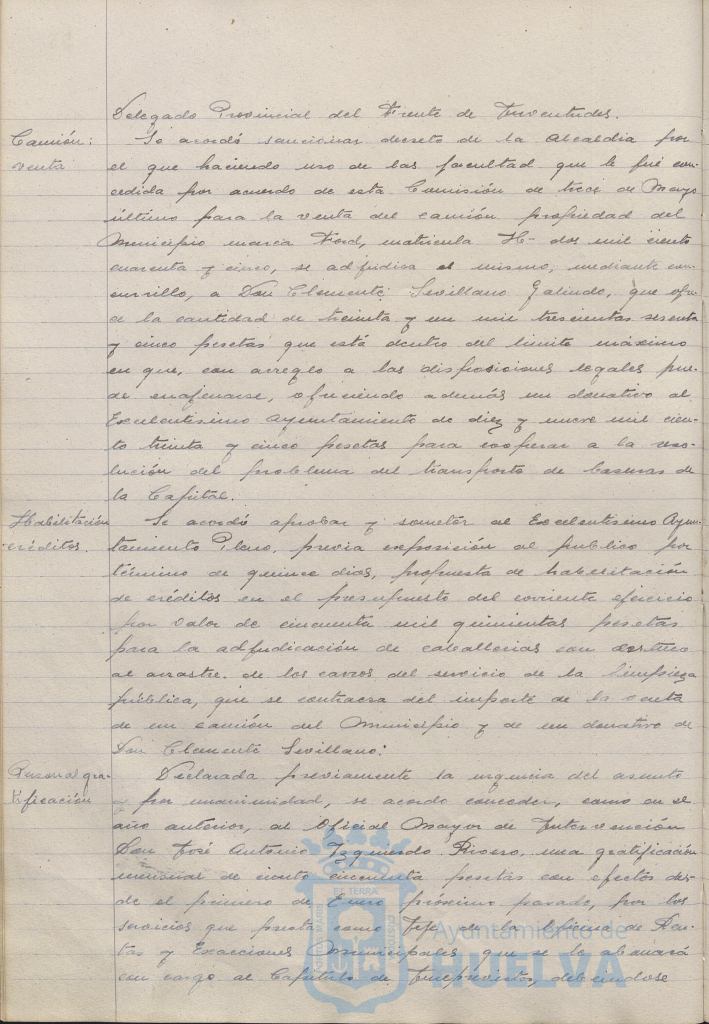 Delegado Provincial del Frente de Juventudes.
Camión:
venta
Se acordó sancionar decreto de la Alcaldia por
el que haciendo uso de las facultad que le fué con-
cedida por acuerdo de esta Comisión de trece de Mayo
último para la venta del camión propiedad del
Municipio marca Ford, matricula H- dos mil ciento
cuarenta y cinco, se adjudica el mismo, mediante con-
cursillo, a Don Clemente Sevillano Galindo, que ofre-
ce la cantidad de treinta y un mil trescientas sesenta
y cinco pesetas que está dentro del limite máximo
en que, con arreglo a las disposiciones legales pue-
de enajenarse, ofreciendo además un donativo al
Excelentisimo Ayuntamiento de diez y nueve mil cien-
to treinta y cinco pesetas para cooperar a la reso-
lución del problema del transporte de basuras de
la Capital.
Habilitación
créditos.
Se acordó aprobar y someter al Excelentisimo Ayun-
tamiento Pleno, previa exposición al publico por
término de quince dias, propuesta de habilitación
de créditos en el presupuesto del corriente ejercicio
por valor de cincuenta mil quinientas pesetas
para la adjudicación de caballerias con destino
al arrastre de los carros del servicio de la limpieza
pública, que se contraera del importe de la venta
de un camión del Municipio y de un donativo de
Don Clemente Sevillano.
Personal gra-
tificación
Declarada previamente la urgencia del asunto
y por unanimidad, se acordo conceder, como en el
año anterior, al Oficial Mayor de Intervención
Don José Antonio Izquierdo Rivero, una gratificación
mensual de ciento cincuenta pesetas con efectos des-
de el primero de Enero próximo pasado, por los
servicios que presta como Jefe de la Oficina de Ren-
tas y Exacciones Municipales, que se le abonará
con cargo al Capitulo de Imprevistos, debiendose
Ayuntamiento de
HUELVA